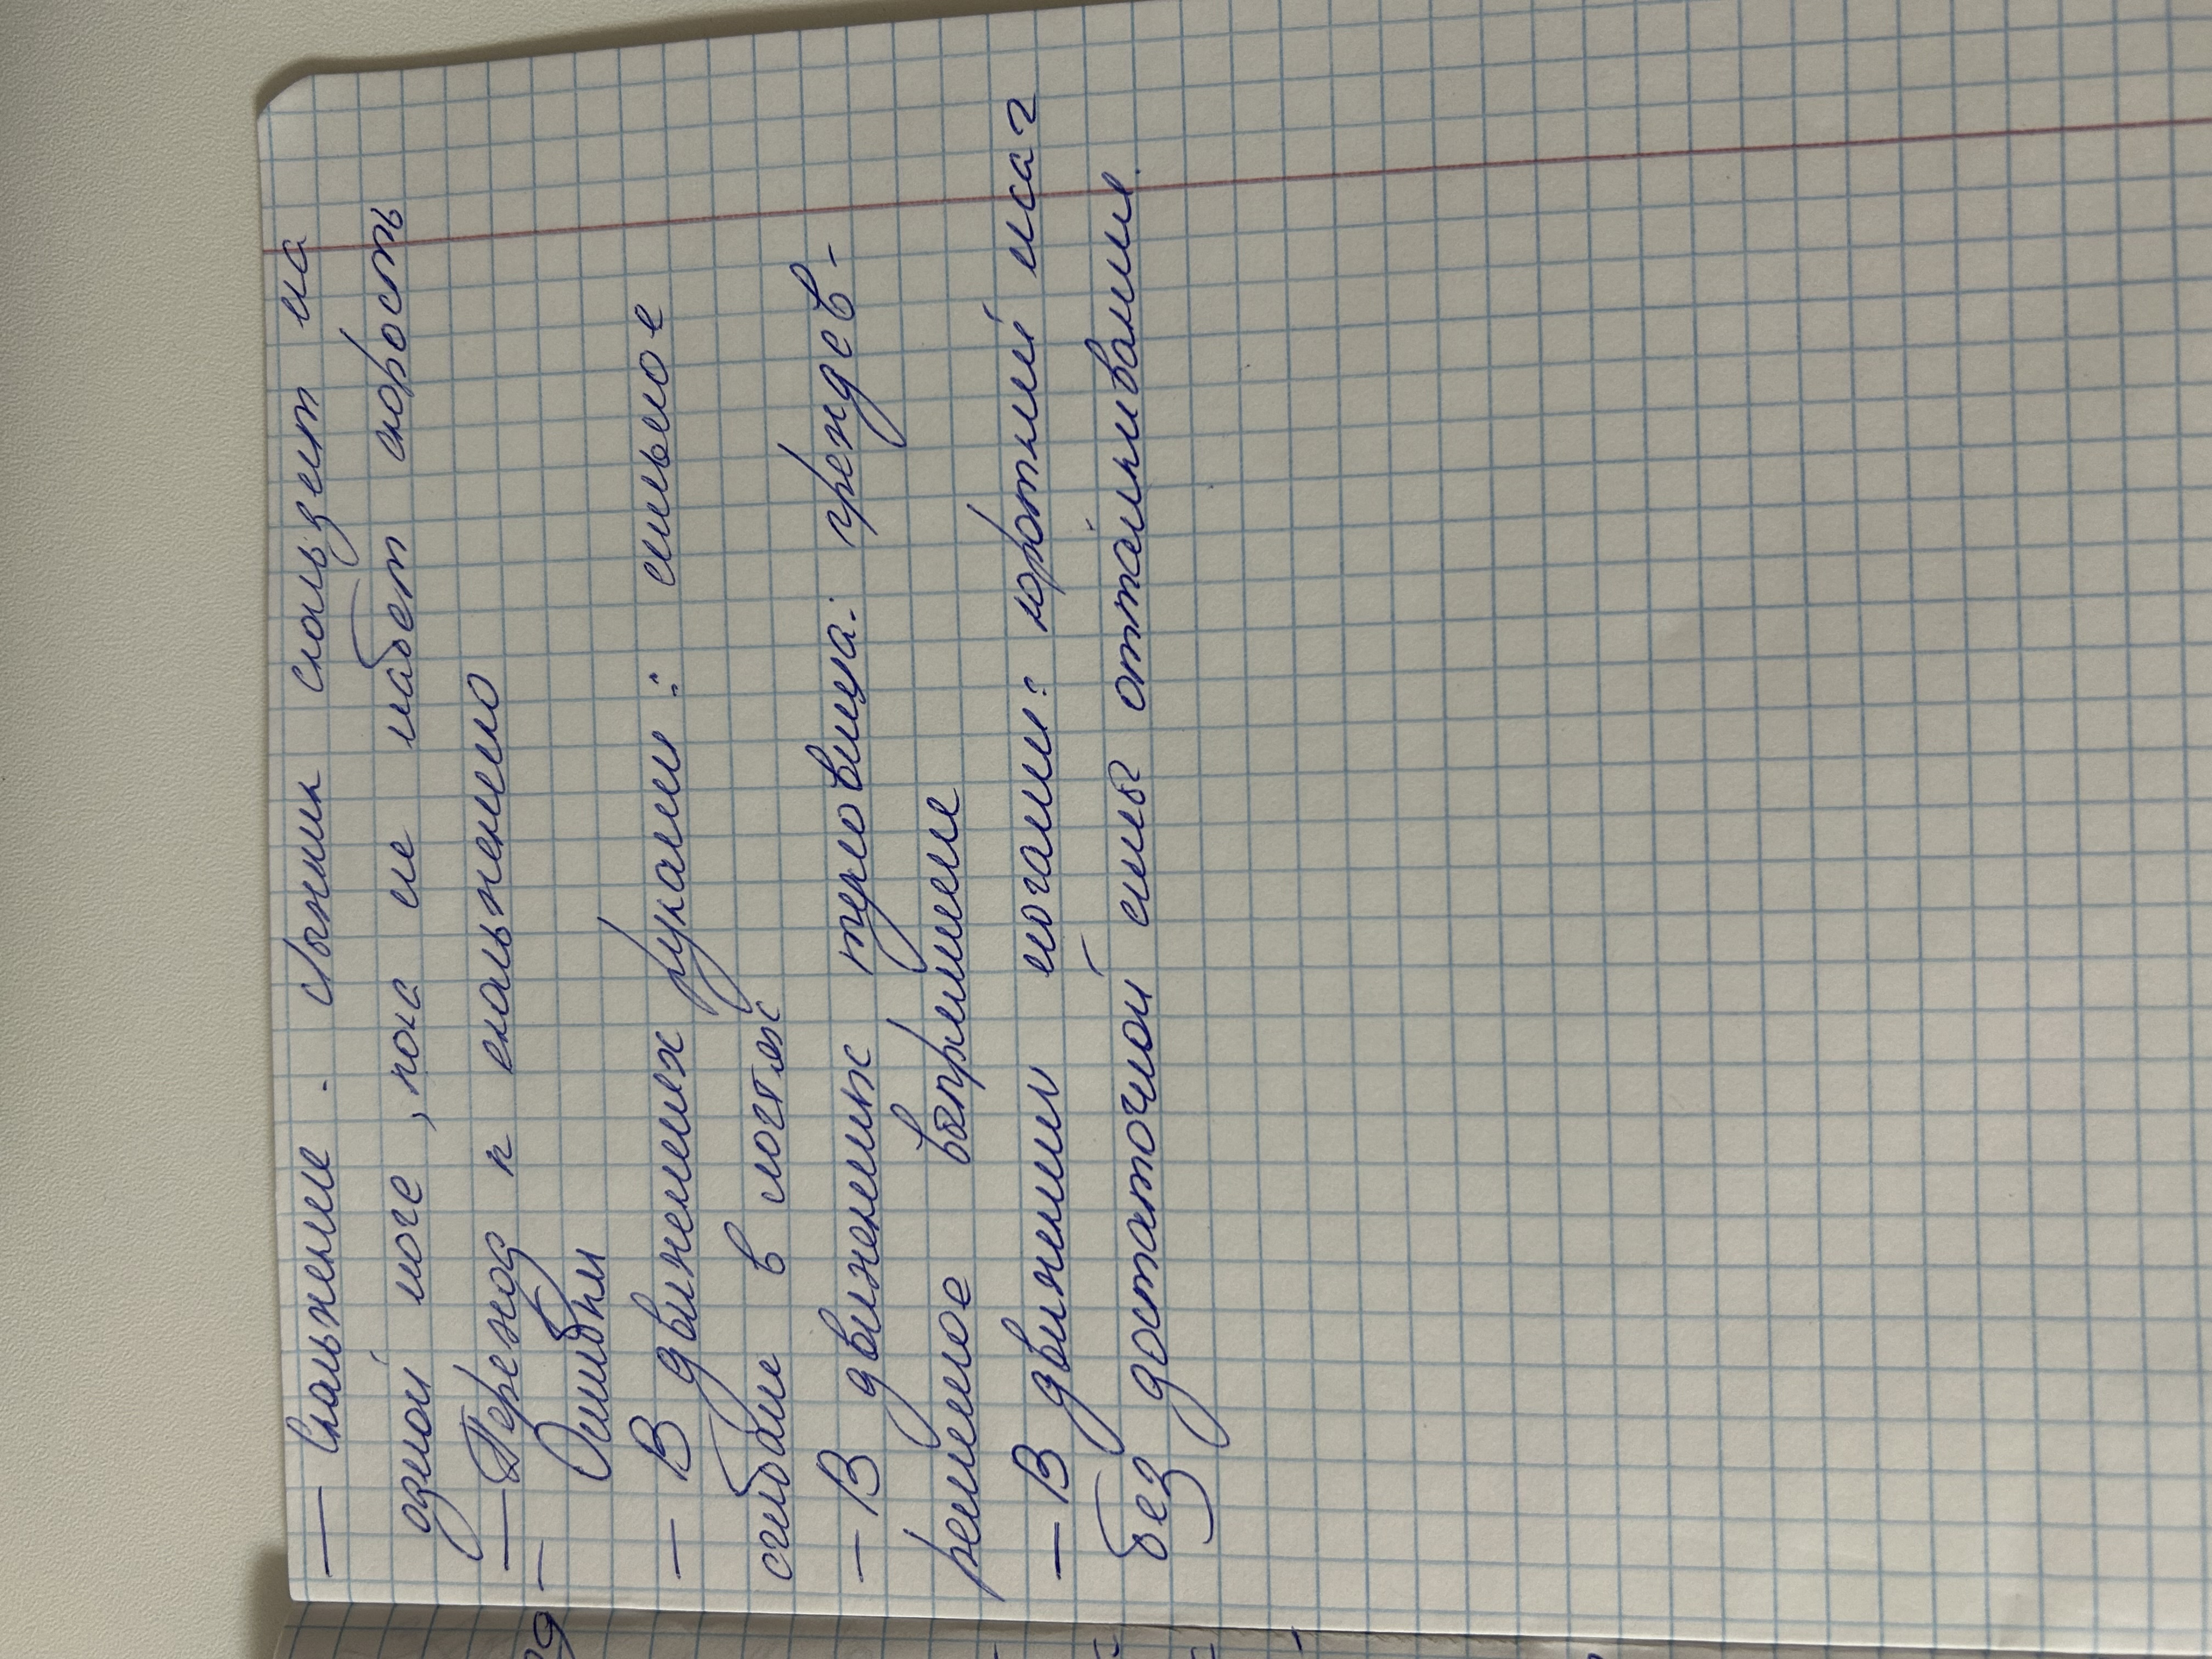 — Скольжение. Лыжник скользит на
одной ноге, пока не набет скорость
— Переход к скольжению
Ошибки
— В движениях руками: сильное
сгибание в логтях
— В движениях туловища: преждев-
ременное выпримление
— В движении ногами: короткий шаг
без достаточной силы отталкивания.